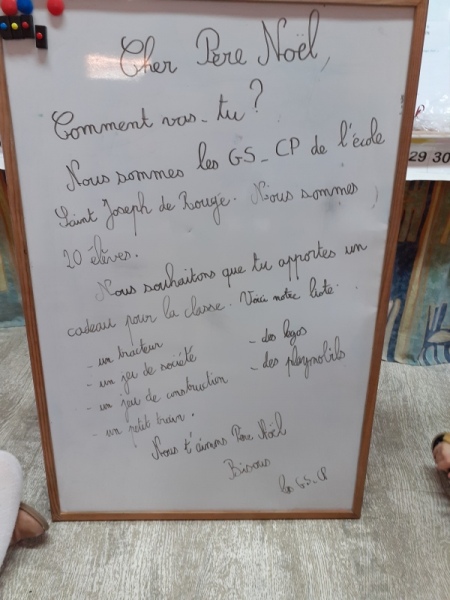 Cher Père Noël,
Comment vas-tu ?
Nous sommes les GS-CP de l'école
Saint Joseph de Rougé. Nous sommes
20 élèves.
Nous souhaitons que tu apportes un
cadeau pour la classe. Voici notre liste :
- un tracteur
- un jeu de société
- un jeu de construction
- un petit train.
- des legos
- des playmobils
Nous t'aimons Père Noël
Bisous
les GS-CP
29 30